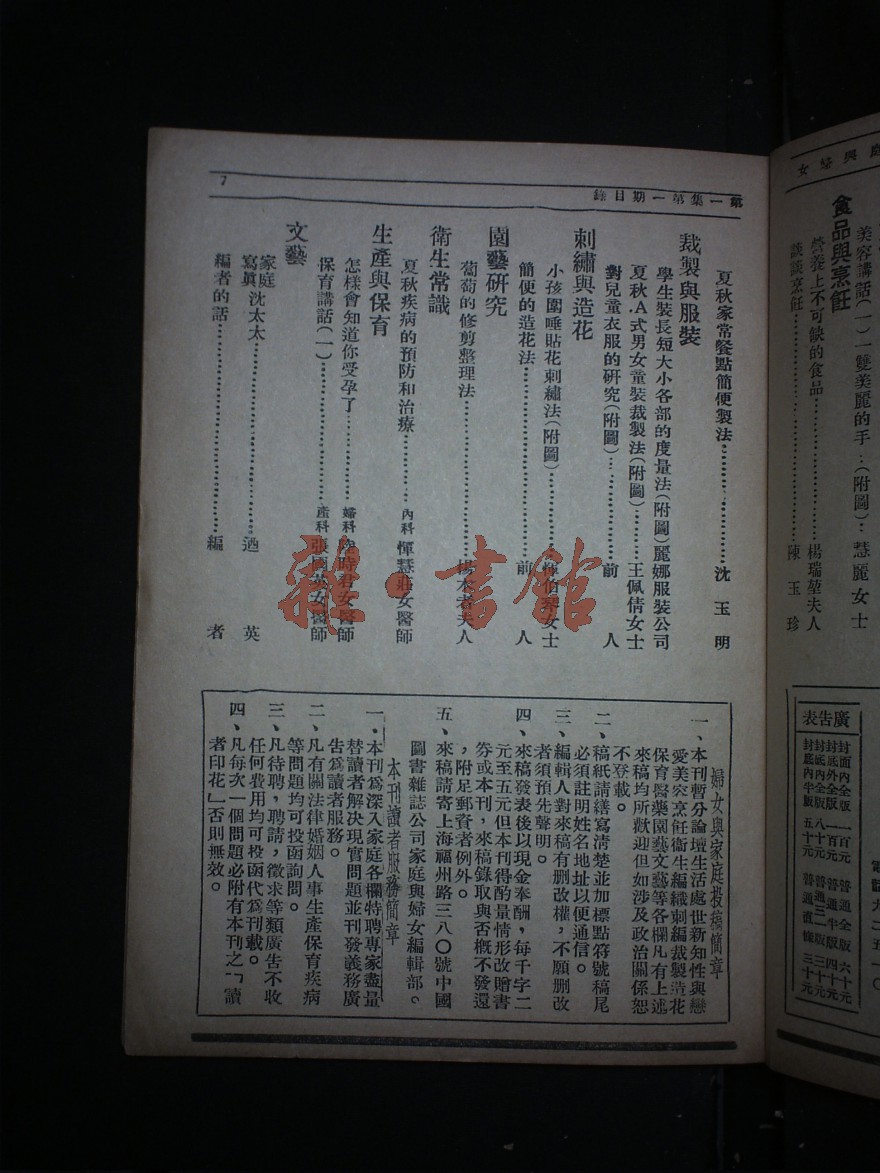 庭與婦女
美容講話(一)一雙美麗的手…(附圖)…慧麗女士
食品與烹飪
營養上不可缺的食品……………楊瑞堃夫人
談談烹飪……………陳玉珍
廣告表
封面內全版 一百元 普通全版 六十元
封底外全版 一百元 普通半版 四十元
封底內全版 八十元 普通三一版 三十元
封底內半版 五十元 普通直條 三十元
第一集第一期目錄
7
夏秋家常餐點簡便製法……………沈玉明
裁製與服裝
學生裝長短大小各部的度量法(附圖)麗娜服裝公司
夏秋A式男女童裝裁製法(附圖)………王佩倩女士
對兒童衣服的研究(附圖)…………前人
刺繡與造花
小孩圍唾貼花刺繡法(附圖)…………伯 女士
簡便的造花法……………前人
園藝研究
葡萄的修剪整理法……………楊 者夫人
衛生常識
夏秋疾病的預防和治療…………內科 惲慧莊女醫師
生產與保育
怎樣會知道你受孕了…………婦科 時君女醫師
保育講話(一)……………產科 張國英女醫師
文藝
家庭寫眞 沈太太……………逎英
編者的話……………編者
婦女與家庭投稿簡章
一、本刊暫分論壇生活處世新知性與戀
愛美容烹飪衞生編織刺編裁製造花
保育醫藥園藝文藝等各欄凡有上述
來稿均所歡迎但如涉及政治關係恕
不登載。
二、稿紙請繕寫清楚並加標點符號稿尾
必須註明姓名地址以便通信。
三、編輯人對來稿有刪改權，不願刪改
者須預先聲明。
四、來稿發表後以現金奉酬，每千字二
元至五元但本刊得酌量情形改贈書
券或本刊，來稿錄取與否概不發還
，附足郵資者例外。
五、來稿請寄上海福州路三八〇號中國
圖書雜誌公司家庭與婦女編輯部。
本刊讀者服務簡章
一、本刊爲深入家庭各欄特聘專家盡量
替讀者解決現實問題並刊發義務廣
告爲讀者服務。
二、凡有關法律婚姻人事生產保育疾病
等問題均可投函詢問。
三、凡待聘，聘請，徵求等類廣告不收
任何費用均可投函代爲刊載。
四、凡每次一個問題必附有本刊之「讀
者印花」否則無效。
雜·書館